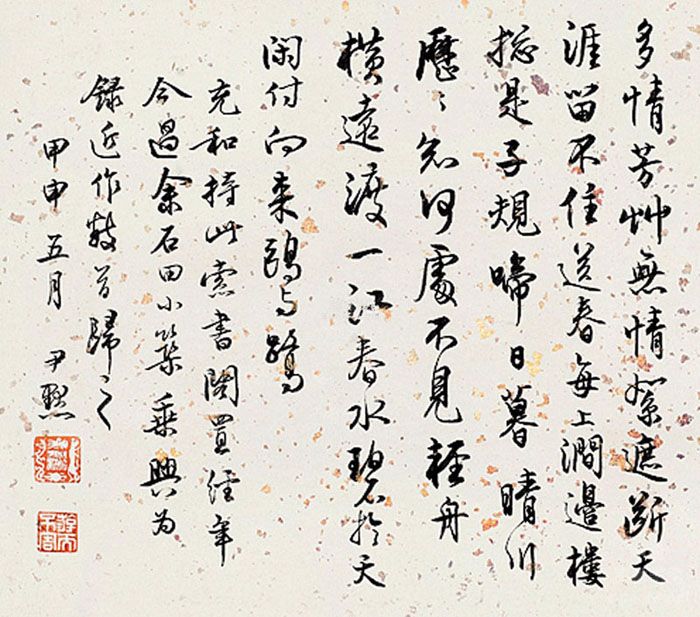 多情芳艸無情絮遮斷天
涯留不住送春每上澗邊樓
揔是子規啼日暮晴川
歷〻知何處不見輕舟
橫遠渡一江春水碧於天
閑付向來鷗与鷺
充和持此索書閣置經年
今過余石田小築乘興為
録近作數首歸之
甲申五月 尹默